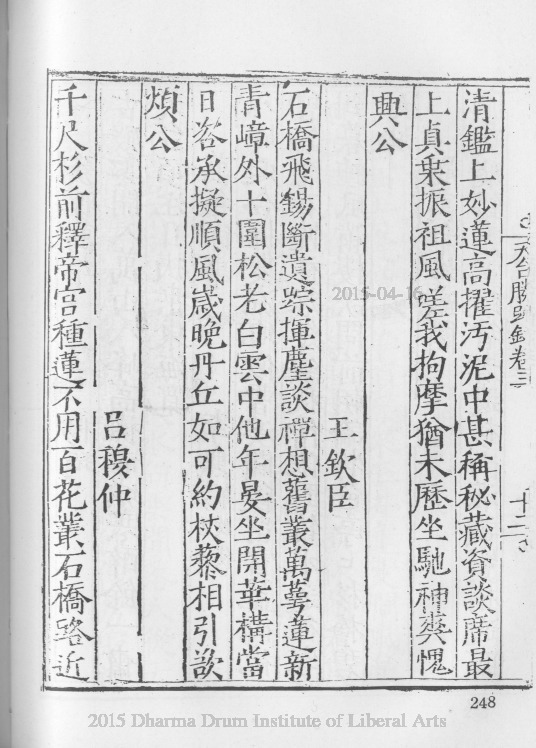 天台勝蹟錄卷三
十二
清鑑上妙蓮高擢汚泥中甚稱秘藏資談席最
上真乗振祖風嗟我拘摩猶未歷坐馳神爽愧
興公
王欽臣
石橋飛錫斷遺踪揮麈談禪想舊叢萬蕚蓮新
青嶂外十圍松老白雲中他年晏坐開華構當
日咨承擬順風歲晚丹丘如可約杖藜相引欲
煩公
吕穆仲
千尺杉前釋帝宫種蓮不用百花叢石橋路近
2015-04-16
248
2015 Dharma Drum Institute of Liberal Arts